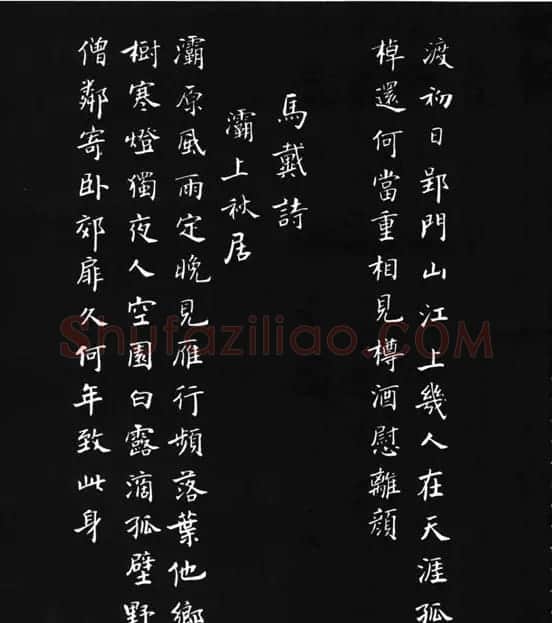 渡初日郢門山江上幾人在天涯孤
棹還何當重相見樽酒慰離顏
馬戴詩
灞上秋居
灞原風雨定晚見雁行頻落葉他鄉
樹寒燈獨夜人空園白露滴孤壁野
僧鄰寄卧郊扉久何年致此身
Shufaziliao.COM